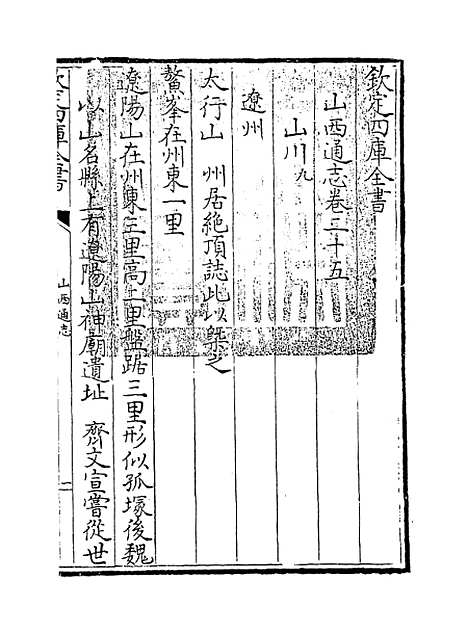 欽定四庫全書
山西通志卷三十五
山川九
遼州
太行山　州居絶頂誌此以槩之
鰲峯在州東一里
遼陽山在州東三里高上里盤踞三里形似孤塚後魏
以山名縣上有遼陽山神廟遺址　齊文宣嘗從世
欽定四庫全書
山西通志
一